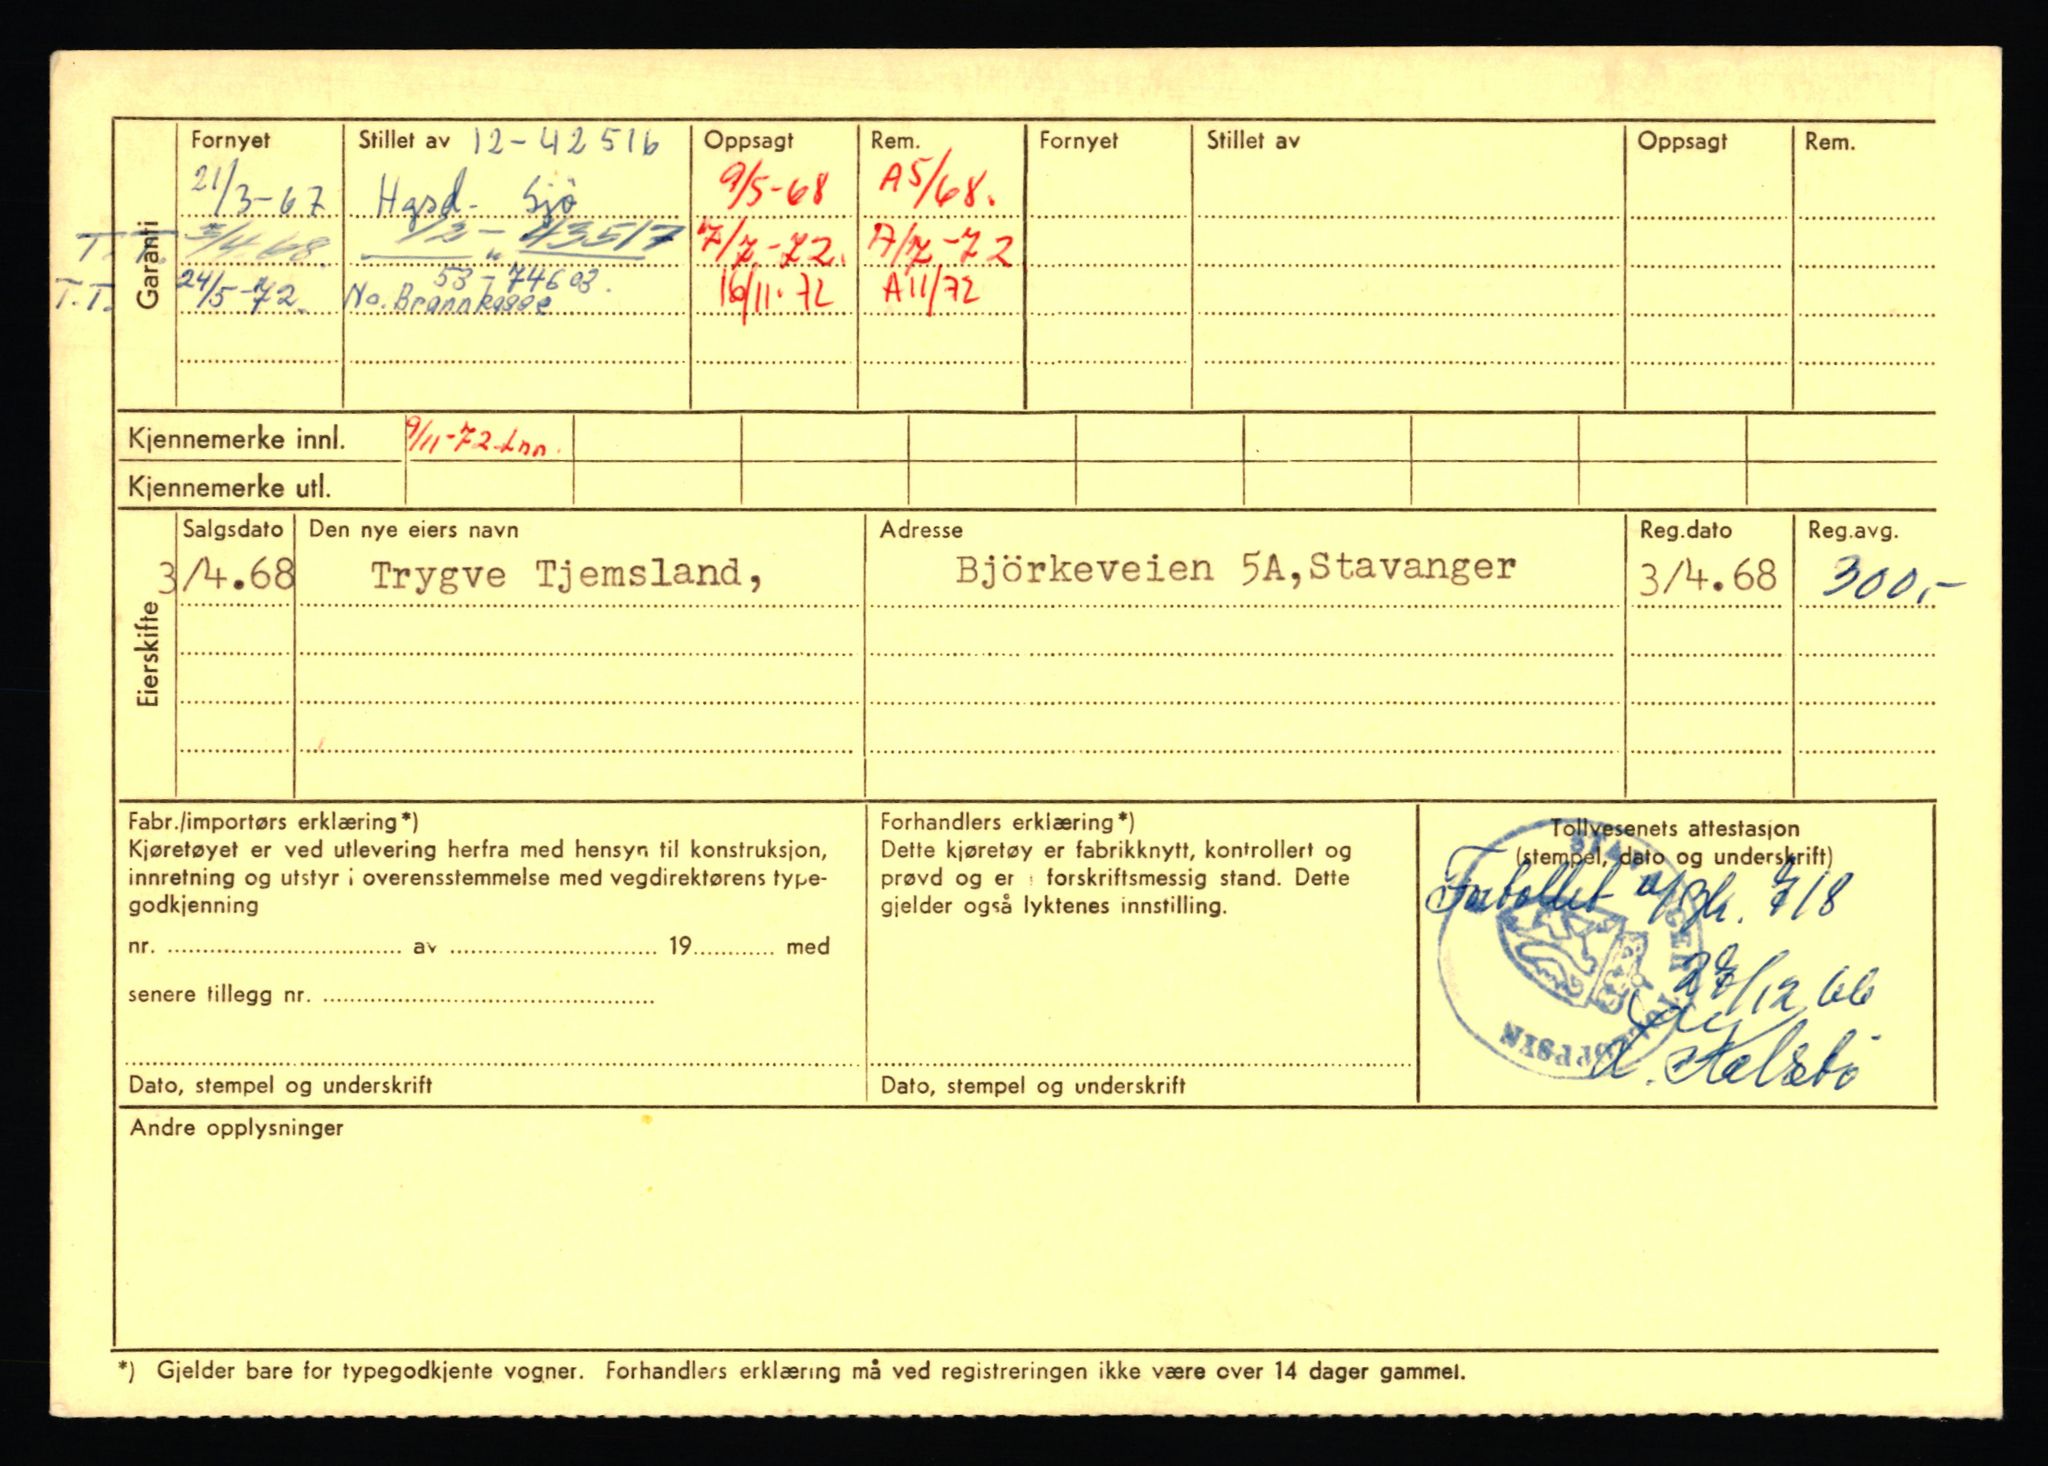 Garanti
Fornyet Stillet av 12-42516 Oppsagt Rem. Fornyet Stillet av Oppsagt Rem.
21/3-67 Hgsd. Sjö 9/5-68 A5/68.
T.T. 3/4.68. 12-43517 7/7-72. A/7-72
T.T. 24/5-72. 53-74603. No. Brannkasse 16/11-72 A11/72
Kjennemerke innl. 9/11-72 Lnn.
Kjennemerke utl.
Eierskifte
Salgsdato Den nye eiers navn Adresse Reg.dato Reg.avg.
3/4.68 Trygve Tjemsland, Björkeveien 5A, Stavanger 3/4.68 300,-
Fabr./importørs erklæring*)
Kjøretøyet er ved utlevering herfra med hensyn til konstruksjon,
innretning og utstyr i overensstemmelse med vegdirektørens type-
godkjenning
nr. av 19 med
senere tillegg nr.
Dato, stempel og underskrift
Forhandlers erklæring*)
Dette kjøretøy er fabrikknytt, kontrollert og
prøvd og er i forskriftsmessig stand. Dette
gjelder også lyktenes innstilling.
Dato, stempel og underskrift
Tollvesenets attestasjon
(stempel, dato og underskrift)
Fortollet 718
27/12 66
Andre opplysninger
*) Gjelder bare for typegodkjente vogner. Forhandlers erklæring må ved registreringen ikke være over 14 dager gammel.